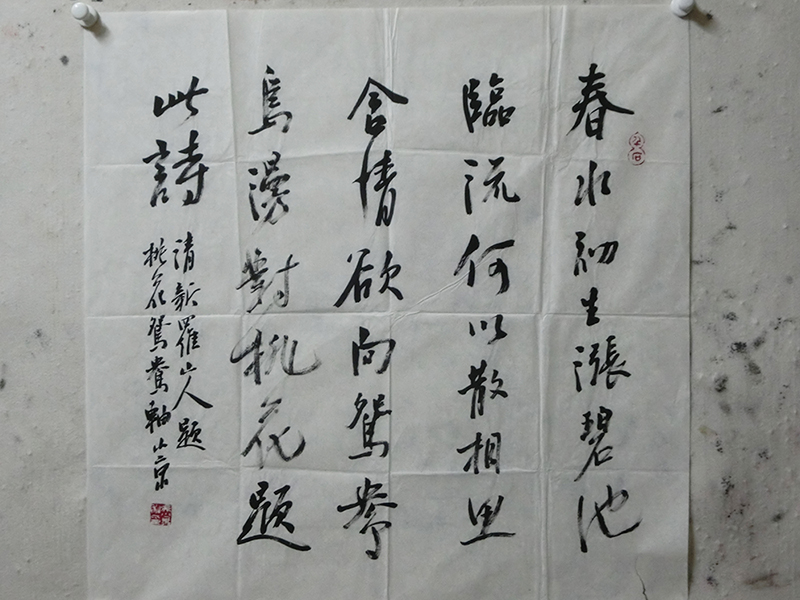 春水初生漲碧池
臨流何以散相思
含情欲向鴛鴦
鳥漫對桃花題
此詩
清新羅山人題
桃花鴛鴦軸京